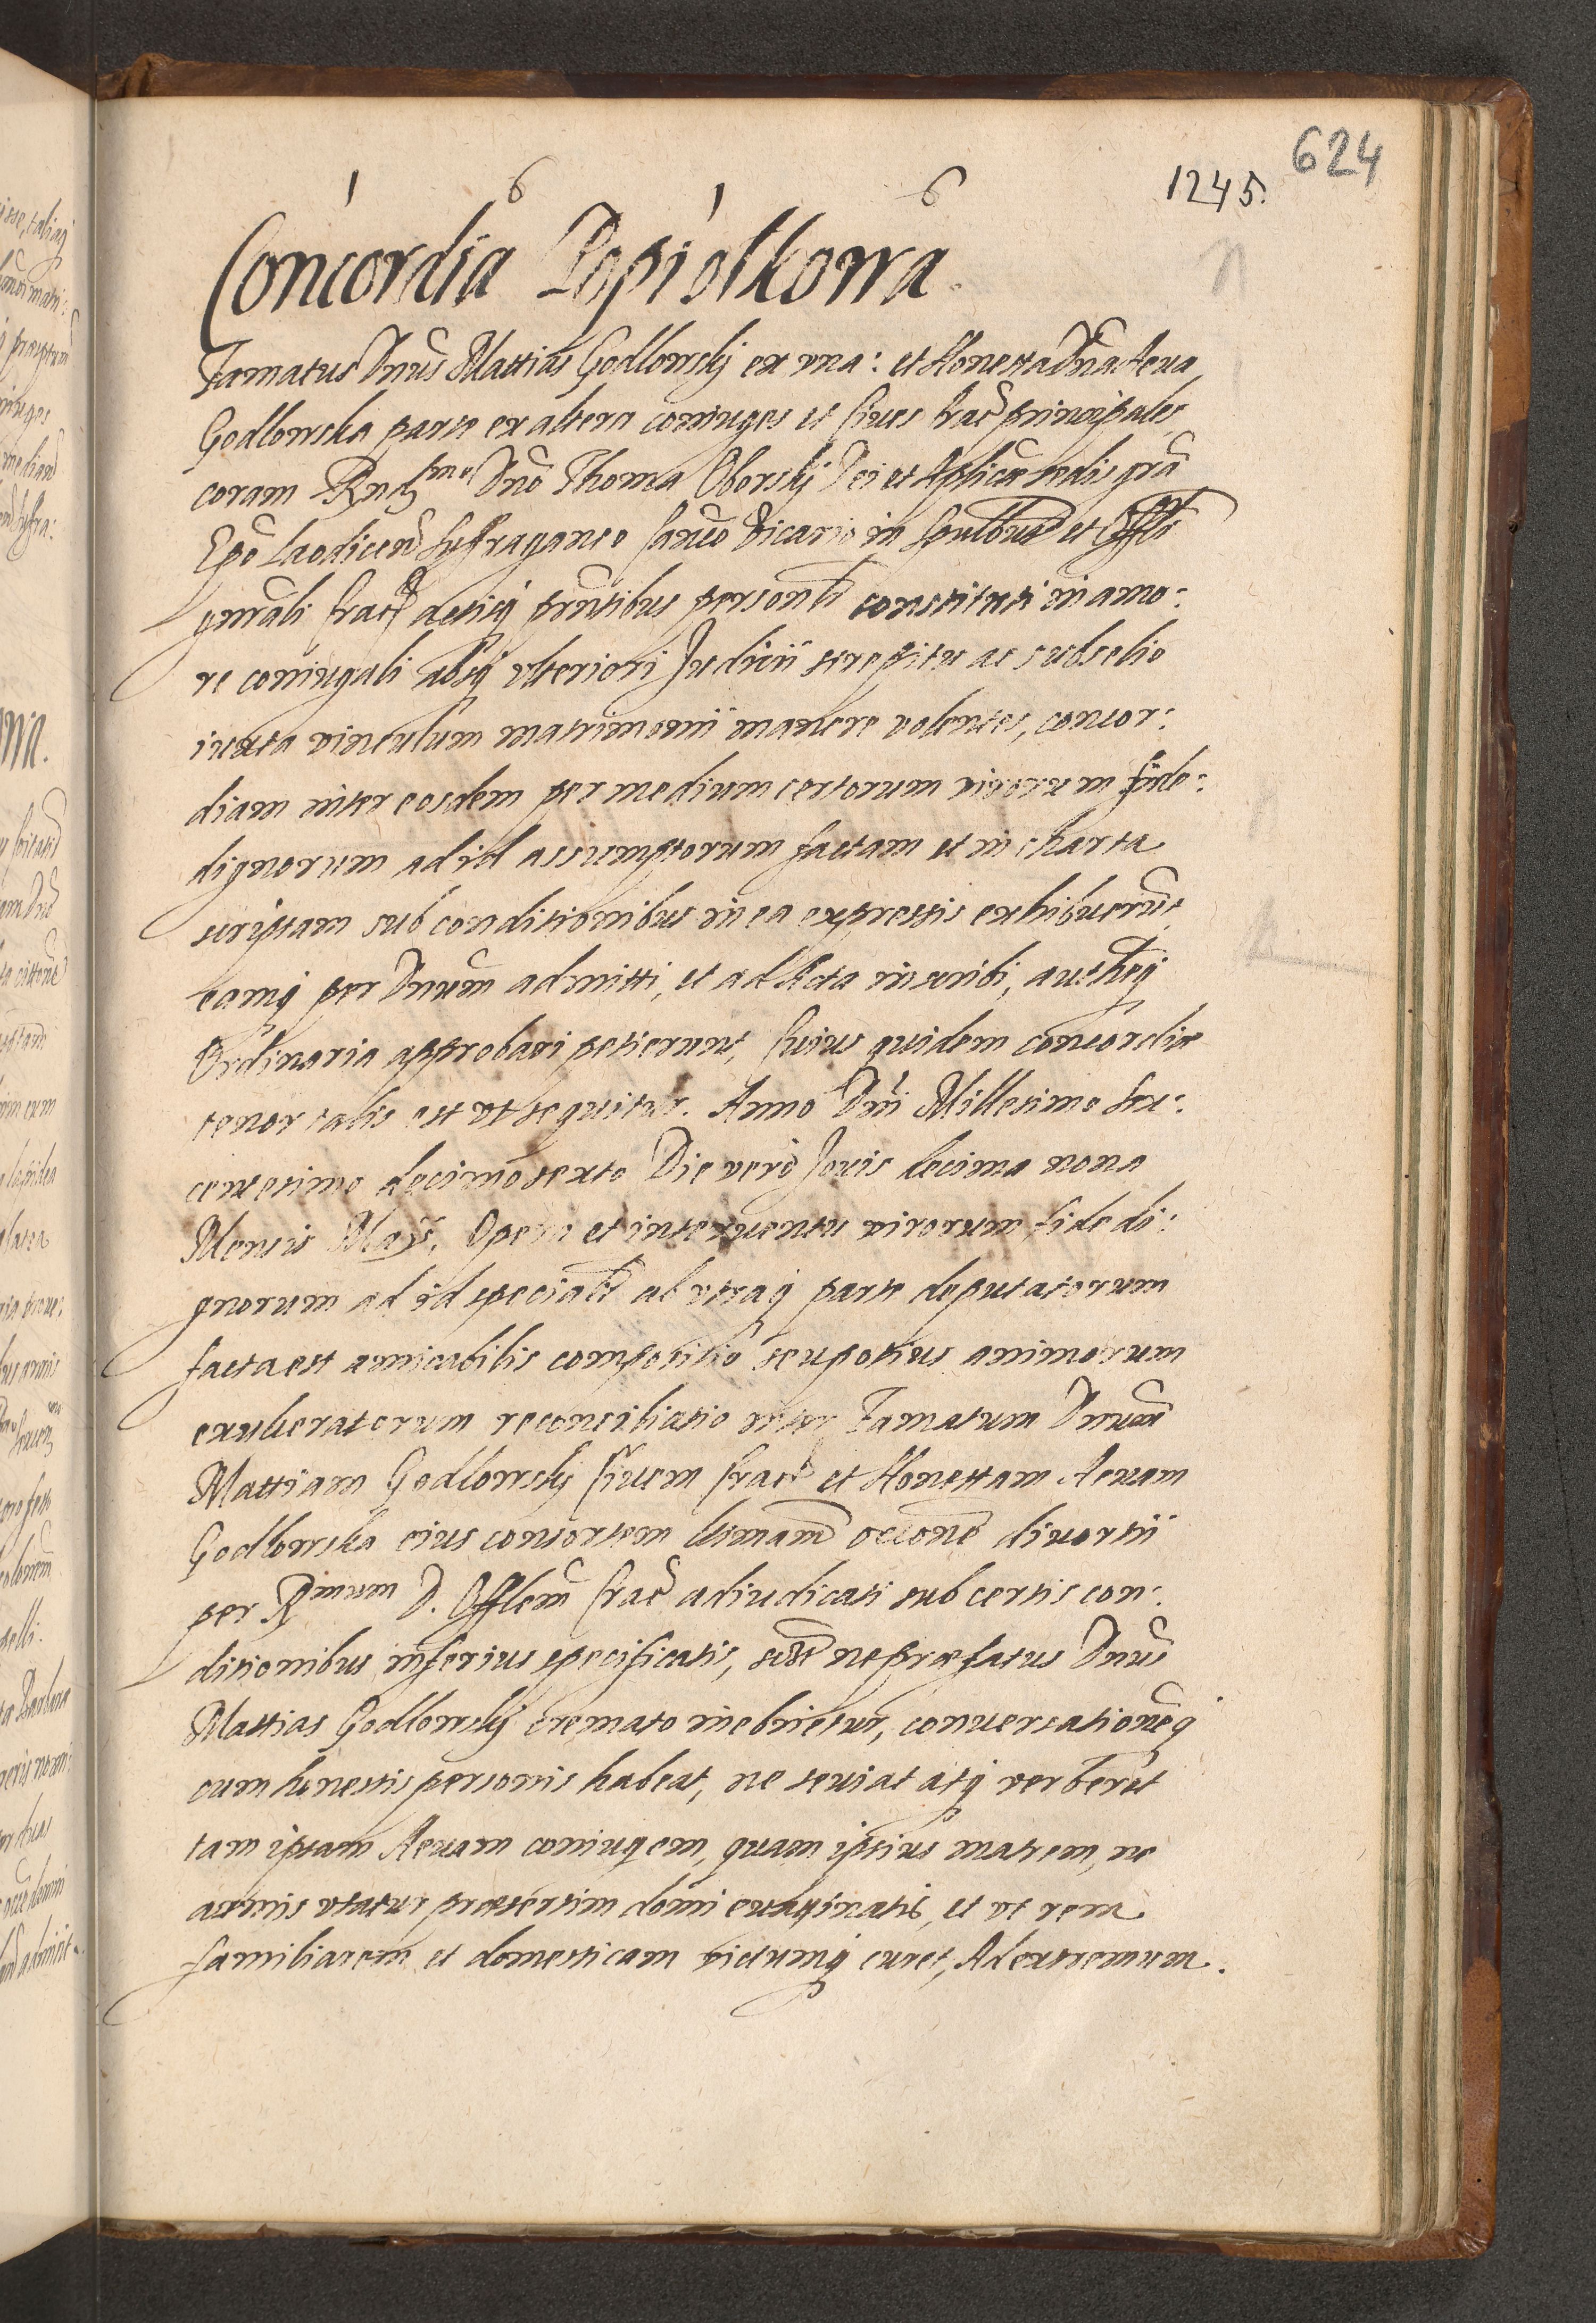 624
1 6 1 6
1245.
Concordia Popiołkowa.
Famatus Dnus Mattias Godlowskj ex vna: et Honesta Dna Aeua
Godlowska parte ex altera coniuges et Ciues Crac principales
coram Rndmo Dno Thoma Oborskj Dei et Aplicæ sedis gra
Epo Laodicen Suffraganeo Vicario in Spualibus et Offli
gnrali Crac actisq prntibus personlr constituti in amo:
re coniugali absq vlteriori Judicii strepitu ac subselio
iuxta vinculum matrimonii manere volentes, concor:
diam inter eosdem per medium certorum virorum fide:
dignorum ad id assumptorum factam et in charta
scriptam sub conditionibus in ea expressis exhibuerut,
eamq per Dnum admitti, et ad Acta inscribi, authteq
Ordinaria approbari petierunt, Cuius quidem concordiæ
tenor talis est vt sequitur. Anno Dni Millesimo sex:
centesimo decimo sexto Die vero Jouis decima nona
Mensis Maij. Opera et interuentu virorum fide di:
gnorum ad id specialr ab vtraq parte deputatorum
facta est amicabilis compositio seu potius animorum
exulceratorum reconciliatio inter Famatum Dnum
Mattiam Godlowskj Ciuem Crac et Honestam Aeuam
Godlowska eius consortem ltimam occone diuortii
per Rmum D. Offlem Crac adiudicati sub certis con:
ditionibus inferius specificatis, ne præfatus Dnus
Mattias Godlowskj cremato inebrietur, conuersationeq
cum honestis personis habeat, ne seuiat atq verberet
tam ipsam Aeuam coniugem, quam ipsius matrem, ne
armis vtatur præsertim domi euaginatis, et vt rem
familiarem et domesticam victumq curet, Ad extremum.